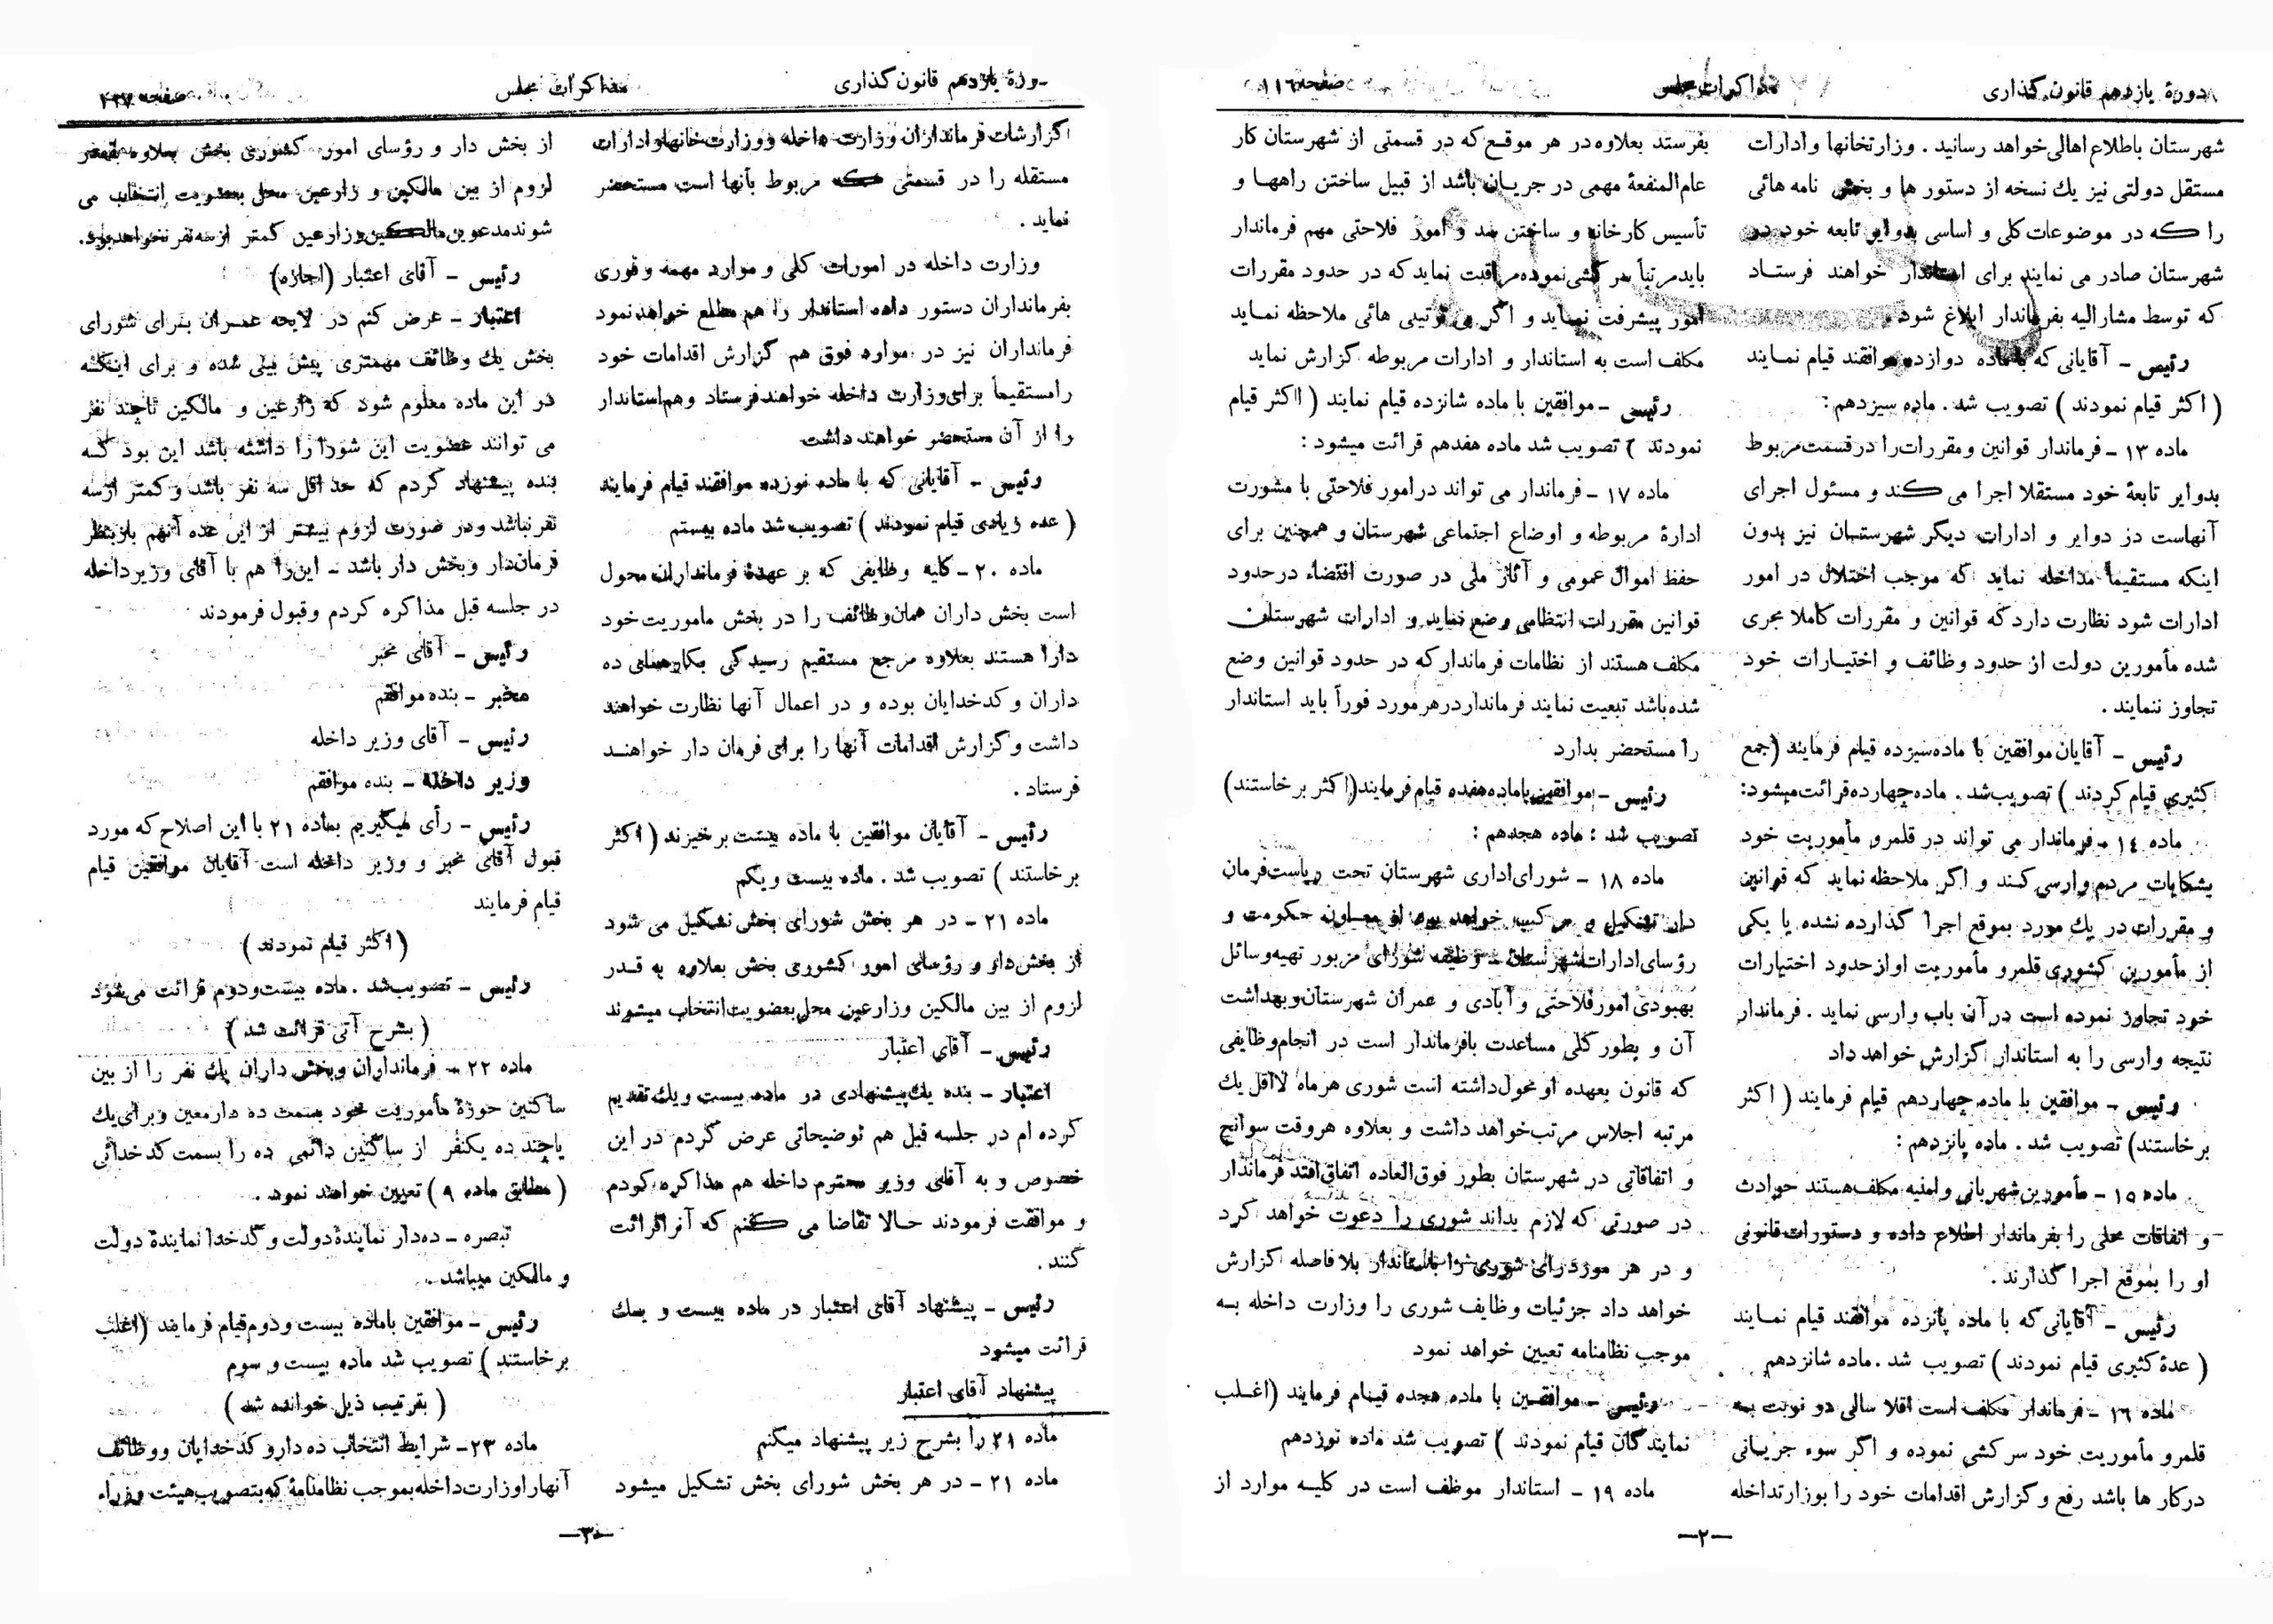 دورهٔ یازدهم قانون گذاری
مذاکرات مجلس
صفحه ۱۱٦
شهرستان باطلاع اهالی خواهد رسانید . وزارتخانها و ادارات
مستقل دولتی نیز یك نسخه از دستور ها و بخش نامه هائی
را که در موضوعات کلی و اساسی بدوایر تابعه خود در
شهرستان صادر می نمایند برای استاندار خواهند فرستاد
که توسط مشارالیه بفرماندار ابلاغ شود .
رئیس ـ آقایانی که با ماده دوازده موافقند قیام نمایند
( اکثر قیام نمودند ) تصویب شد . ماده سیزدهم :
ماده ۱۳ ـ فرماندار قوانین و مقررات را در قسمت مربوط
بدوایر تابعهٔ خود مستقلا اجرا می کند و مسئول اجرای
آنهاست در دوایر و ادارات دیگر شهرستان نیز بدون
اینکه مستقیماً مداخله نماید که موجب اختلال در امور
ادارات شود نظارت دارد که قوانین و مقررات کاملا مجری
شده مأمورین دولت از حدود وظائف و اختیارات خود
تجاوز ننمایند .
رئیس ـ آقایان موافقین با ماده سیزده قیام فرمایند (جمع
کثیری قیام کردند ) تصویب شد . ماده چهارده قرائت میشود:
ماده ۱٤ ـ فرماندار می تواند در قلمرو مأموریت خود
بشکایات مردم وارسی کند و اگر ملاحظه نماید که قوانین
و مقررات در یك مورد بموقع اجرا گذارده نشده یا یکی
از مأمورین کشوری قلمرو مأموریت او از حدود اختیارات
خود تجاوز نموده است در آن باب وارسی نماید . فرماندار
نتیجه وارسی را به استاندار گزارش خواهد داد
رئیس ـ موافقین با ماده چهاردهم قیام فرمایند ( اکثر
برخاستند) تصویب شد . ماده پانزدهم :
ماده ۱۵ ـ مأمورین شهربانی و امنیه مکلف هستند حوادث
و اتفاقات محلی را بفرماندار اطلاع داده و دستورات قانونی
او را بموقع اجرا گذارند .
رئیس ـ آقایانی که با ماده پانزده موافقند قیام نمایند
( عدهٔ کثیری قیام نمودند ) تصویب شد . ماده شانزدهم
ماده ۱٦ ـ فرماندار مکلف است اقلا سالی دو نوبت به
قلمرو مأموریت خود سرکشی نموده و اگر سوء جریانی
در کار ها باشد رفع و گزارش اقدامات خود را بوزارتداخله
بفرستد بعلاوه در هر موقع که در قسمتی از شهرستان کار
عام المنفعهٔ مهمی در جریان باشد از قبیل ساختن راهها و
تأسیس کارخانه و ساختن سد و امور فلاحتی مهم فرماندار
باید مرتباً سر کشی نموده مراقبت نماید که در حدود مقررات
امور پیشرفت نماید و اگر بی ترتیبی هائی ملاحظه نماید
مکلف است به استاندار و ادارات مربوطه گزارش نماید
رئیس ـ موافقین با ماده شانزده قیام نمایند ( اکثر قیام
نمودند ) تصویب شد ماده هفدهم قرائت میشود :
ماده ۱۷ ـ فرماندار می تواند در امور فلاحتی با مشورت
ادارهٔ مربوطه و اوضاع اجتماعی شهرستان و همچنین برای
حفظ اموال عمومی و آثار ملی در صورت اقتضاء در حدود
قوانین مقررات انتظامی وضع نماید و ادارات شهرستان
مکلف هستند از نظامات فرماندار که در حدود قوانین وضع
شده باشد تبعیت نمایند فرماندار در هر مورد فوراً باید استاندار
را مستحضر بدارد
رئیس ـ موافقین با ماده هفده قیام فرمایند (اکثر برخاستند)
تصویب شد : ماده هجدهم :
ماده ۱۸ ـ شورای اداری شهرستان تحت ریاست فرمان
دار تشکیل و مرکب خواهد بود از معاون حکومت و
رؤسای ادارات شهرستان ـ وظیفه شورای مزبور تهیه وسائل
بهبودی امور فلاحتی و آبادی و عمران شهرستان و بهداشت
آن و بطور کلی مساعدت با فرماندار است در انجام وظایفی
که قانون بعهده او محول داشته است شوری هر ماه لااقل یك
مرتبه اجلاس مرتب خواهد داشت و بعلاوه هر وقت سوانح
و اتفاقاتی در شهرستان بطور فوق العاده اتفاق افتد فرماندار
در صورتی که لازم بداند شوری را دعوت خواهد کرد
و در هر مورد رای شوری را باستاندار بلا فاصله گزارش
خواهد داد جزئیات وظایف شوری را وزارت داخله به
موجب نظامنامه تعیین خواهد نمود
رئیس ـ موافقین با ماده هجده قیام فرمایند (اغلب
نمایندگان قیام نمودند ) تصویب شد ماده نوزدهم
ماده ۱۹ ـ استاندار موظف است در کلیه موارد از
—۲—
دورهٔ یازدهم قانون گذاری
مذاکرات مجلس
صفحه
گزارشات فرمانداران وزارت داخله و وزارت خانها و ادارات
مستقله را در قسمتی که مربوط بآنها است مستحضر
نماید .
وزارت داخله در امورات کلی و موارد مهمه و فوری
بفرمانداران دستور داده استاندار را هم مطلع خواهد نمود
فرمانداران نیز در موارد فوق هم گزارش اقدامات خود
را مستقیماً برای وزارت داخله خواهند فرستاد و هم استاندار
را از آن مستحضر خواهند داشت
رئیس ـ آقایانی که با ماده نوزده موافقند قیام فرمایند
( عده زیادی قیام نمودند ) تصویب شد ماده بیستم
ماده ۲۰ ـ کلیه وظایفی که بر عهدهٔ فرمانداران محول
است بخش داران همان وظائف را در بخش ماموریت خود
دارا هستند بعلاوه مرجع مستقیم رسیدگی بکارهای ده
داران و کدخدایان بوده و در اعمال آنها نظارت خواهند
داشت و گزارش اقدامات آنها را برای فرمان دار خواهند
فرستاد .
رئیس ـ آقایان موافقین با ماده بیست برخیزند ( اکثر
برخاستند ) تصویب شد . ماده بیست و یکم
ماده ۲۱ ـ در هر بخش شورای بخش تشکیل می شود
از بخش دار و رؤسای امور کشوری بخش بعلاوه به قدر
لزوم از بین مالکین و زارعین محل بعضویت انتخاب میشوند
رئیس ـ آقای اعتبار
اعتبار ـ بنده یك پیشنهادی در ماده بیست و یك تقدیم
کرده ام در جلسه قبل هم توضیحاتی عرض کردم در این
خصوص و به آقای وزیر محترم داخله هم مذاکره کردم
و موافقت فرمودند حالا تقاضا می کنم که آنرا قرائت
کنند .
رئیس ـ پیشنهاد آقای اعتبار در ماده بیست و یك
قرائت میشود
پیشنهاد آقای اعتبار
ماده ۲۱ را بشرح زیر پیشنهاد میکنم
ماده ۲۱ ـ در هر بخش شورای بخش تشکیل میشود
از بخش دار و رؤسای امور کشوری بخش بعلاوه بقدر
لزوم از بین مالکین و زارعین محل بعضویت انتخاب می
شوند مدعوین مالکین و زارعین کمتر از سه نفر نخواهد بود.
رئیس ـ آقای اعتبار (اجازه)
اعتبار ـ عرض کنم در لایحه عمران برای شورای
بخش یك وظائف مهمتری پیش بینی شده و برای اینکه
در این ماده معلوم شود که زارعین و مالکین تا چند نفر
می توانند عضویت این شورا را داشته باشد این بود که
بنده پیشنهاد کردم که حد اقل سه نفر باشد و کمتر از سه
نفر نباشد و در صورت لزوم بیشتر از این عده آنهم باز بنظر
فرمان‌دار و بخش دار باشد ـ این را هم با آقای وزیر داخله
در جلسه قبل مذاکره کردم و قبول فرمودند
رئیس ـ آقای مخبر
مخبر ـ بنده موافقم
رئیس ـ آقای وزیر داخله
وزیر داخله ـ بنده موافقم
رئیس ـ رأی میگیریم بماده ۲۱ با این اصلاح که مورد
قبول آقای مخبر و وزیر داخله است آقایان موافقین قیام
قیام فرمایند
( اکثر قیام نمودند )
رئیس ـ تصویب شد . ماده بیست و دوم قرائت می شود
( بشرح آتی قرائت شد )
ماده ۲۲ ـ فرمانداران و بخش داران یك نفر را از بین
ساکنین حوزهٔ مأموریت خود بسمت ده دار معین و برای یك
یا چند ده یکنفر از ساکنین دائمی ده را بسمت کدخدائی
( مطابق ماده ۹ ) تعیین خواهند نمود .
تبصره ـ ده دار نمایندهٔ دولت و کدخدا نمایندهٔ دولت
و مالکین میباشد .
رئیس ـ موافقین با ماده بیست و دوم قیام فرمایند (اغلب
برخاستند ) تصویب شد ماده بیست و سوم
( بترتیب ذیل خوانده شد )
ماده ۲۳ ـ شرایط انتخاب ده دار و کدخدایان و وظائف
آنها را وزارت داخله بموجب نظامنامهٔ که بتصویب هیئت وزراء
—۳—